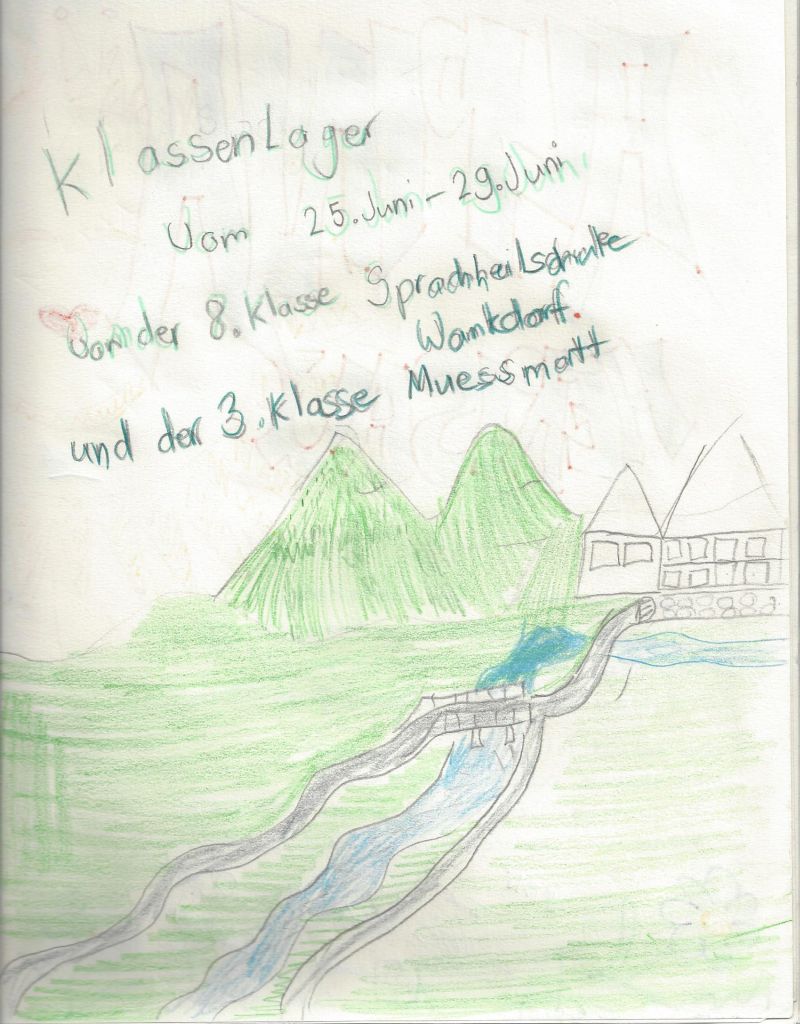 KlassenLager
Vom 25.Juni - 29.Juni
Von der 8.Klasse Sprachheilschule
Wankdorf.
und der 3.Klasse Muessmatt